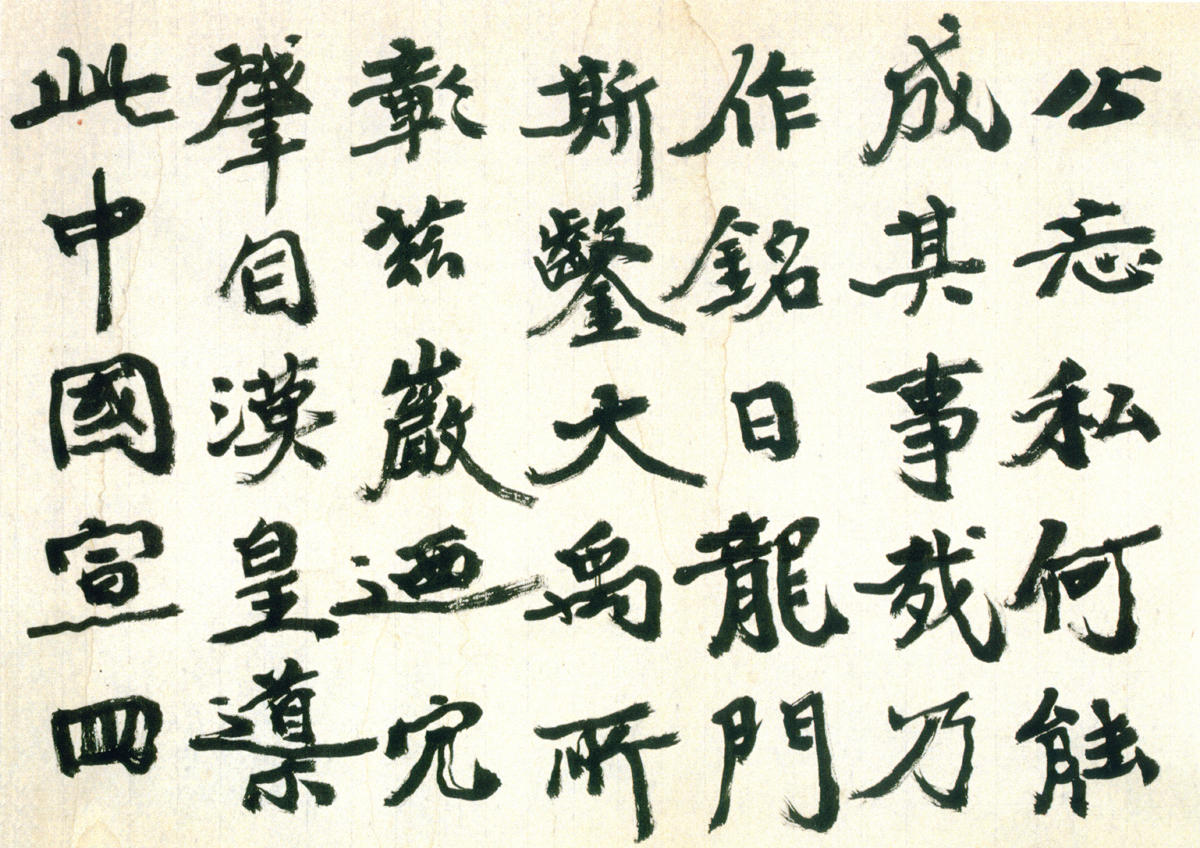 公忘私何能
成其事哉乃
作銘曰龍門
斯鑿大禹所
彰茲巖迺穴
肇自漢皇導
此中國宣四